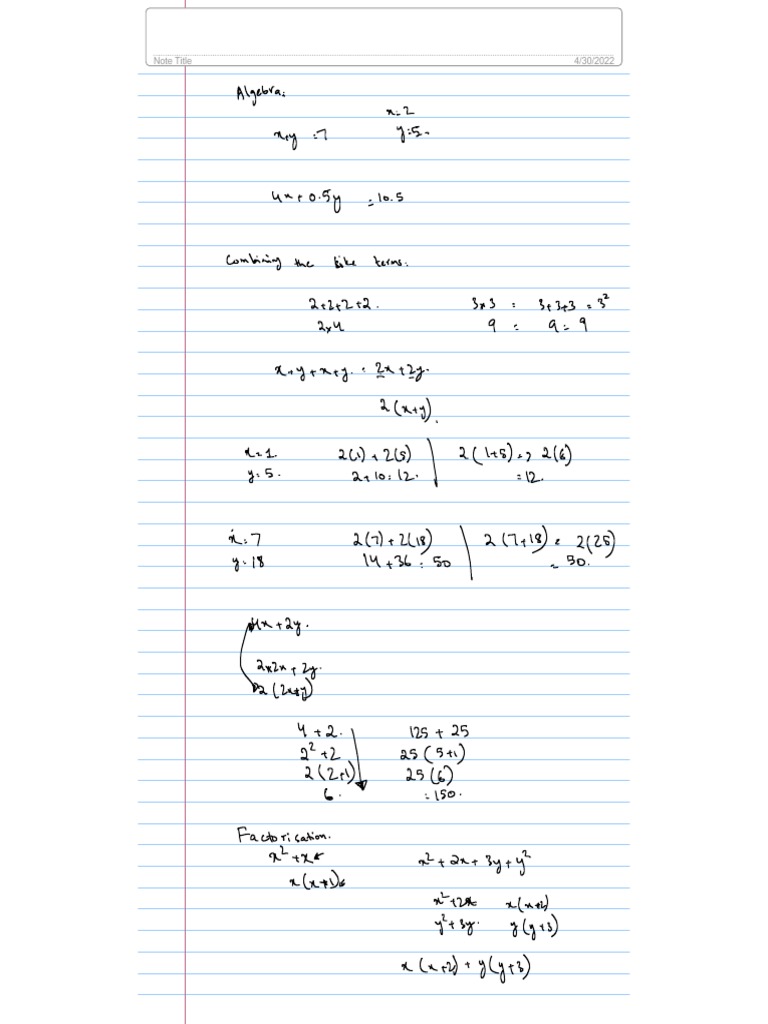 Note Title 4/30/2022
Algebra:
x+y =7 x=2
y=5.
4x+0.5y =10.5
Combining the like terms:
2+2+2+2. 3x3 = 3+3+3 = 3²
2x4 9 = 9 = 9
x+y+x+y. = 2x+2y.
2(x+y).
x=1. 2(1)+2(5) 2(1+5) => 2(6)
y=5. 2+10=12. =12.
x=7 2(7)+2(18) 2(7+18) = 2(25)
y=18 14+36=50 = 50.
4x+2y.
2x2x+2y.
2(2x+y)
4+2. 125 + 25
2²+2 25(5+1)
2(2+1) 25(6)
6. =150.
Factorisation.
x²+x x²+2x+3y+y²
x(x+1)
x²+2x x(x+2)
y²+3y. y(y+3)
x(x+2)+y(y+3)